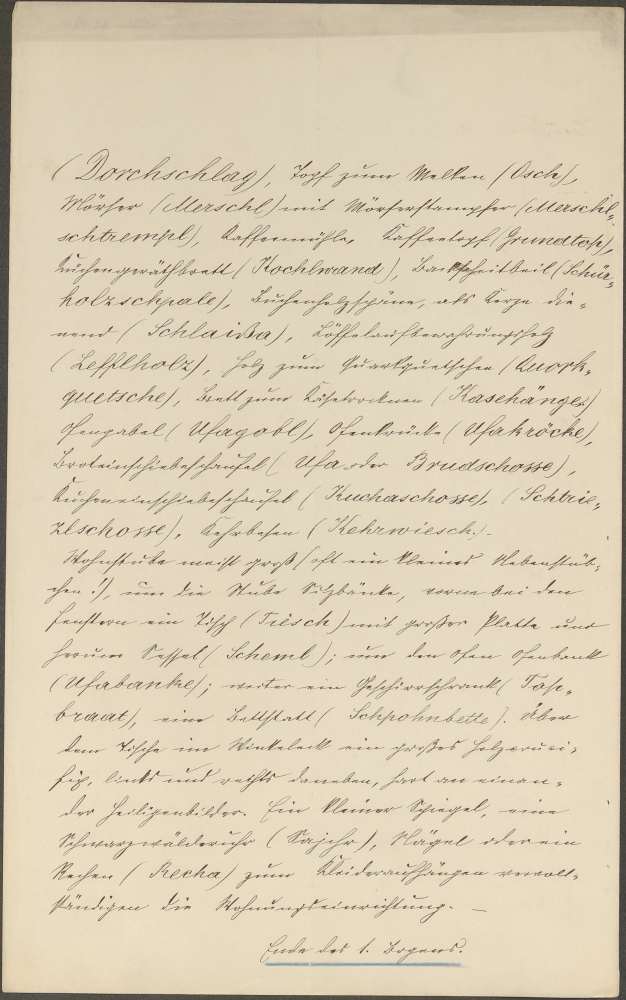 (Dorchschlag), Topf zum Melken (Osch),
Mörser (Merschl) mit Mörserstampfer (Merschl-
schtrempl), Kaffeemühle, Kaffeetopf (Grundtop),
Küchengeräthbrett (Kochlwand), Backscheitbeil (Schür-
holzschpale), Buchenholzspäne, als Kerze die-
nend (Schlaißa), Löffelaufbewahrungsholz
(Lefflholz), Holz zum Quarkquetschen (Quork-
quetsche), Brett zum Käsetrocknen (Kasehänge)
Ofengabel (Ufagobl), Ofenkrücke (Ufakröcke),
Broteinschiebeschaufel (Ufa- oder Brudschosse),
Kucheneinschiebeschaufel (Kuchaschosse), (Schtrie-
zlschosse), Kehrbesen (Kehrwiesch.)-
Wohnstube meist groß (oft ein kleines Nebenstüb-
chen!), um die Stube Sitzbänke, vorne bei den
Fenstern ein Tisch (Tiesch) mit großer Platte und
herum Sessel (Scheml); um den Ofen Ofenbank
(Ufabanke); weiter ein Geschirrschrank (Tose-
braat), eine Bettstatt (Schpohnbette). Über
dem Tische im Winkeleck ein großes Holzcruci-
fix, links und rechts daneben, hart an einan-
der Heiligenbilder. Ein kleiner Spiegel, eine
Schwarzwälderuhr (Sajchr), Nägel oder ein
Rechen (Recha) zum Kleideraufhängen vervoll-
ständigen die Wohnungseinrichtung. –
Ende des 1. Bogens.